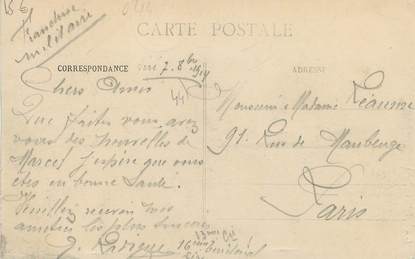 Franchise
militaire
CARTE POSTALE
CORRESPONDANCE
ADRESSE
7. 8bre 1914
Chers Amis
44
Que faites vous avez
vous des nouvelles de
Marcel j'espère que vous
êtes en bonne santé.
Veuillez recevoir mes
amitiés les plus sincères
Monsieur & Madame Réaume
91. Rue de Maubeuge
Paris